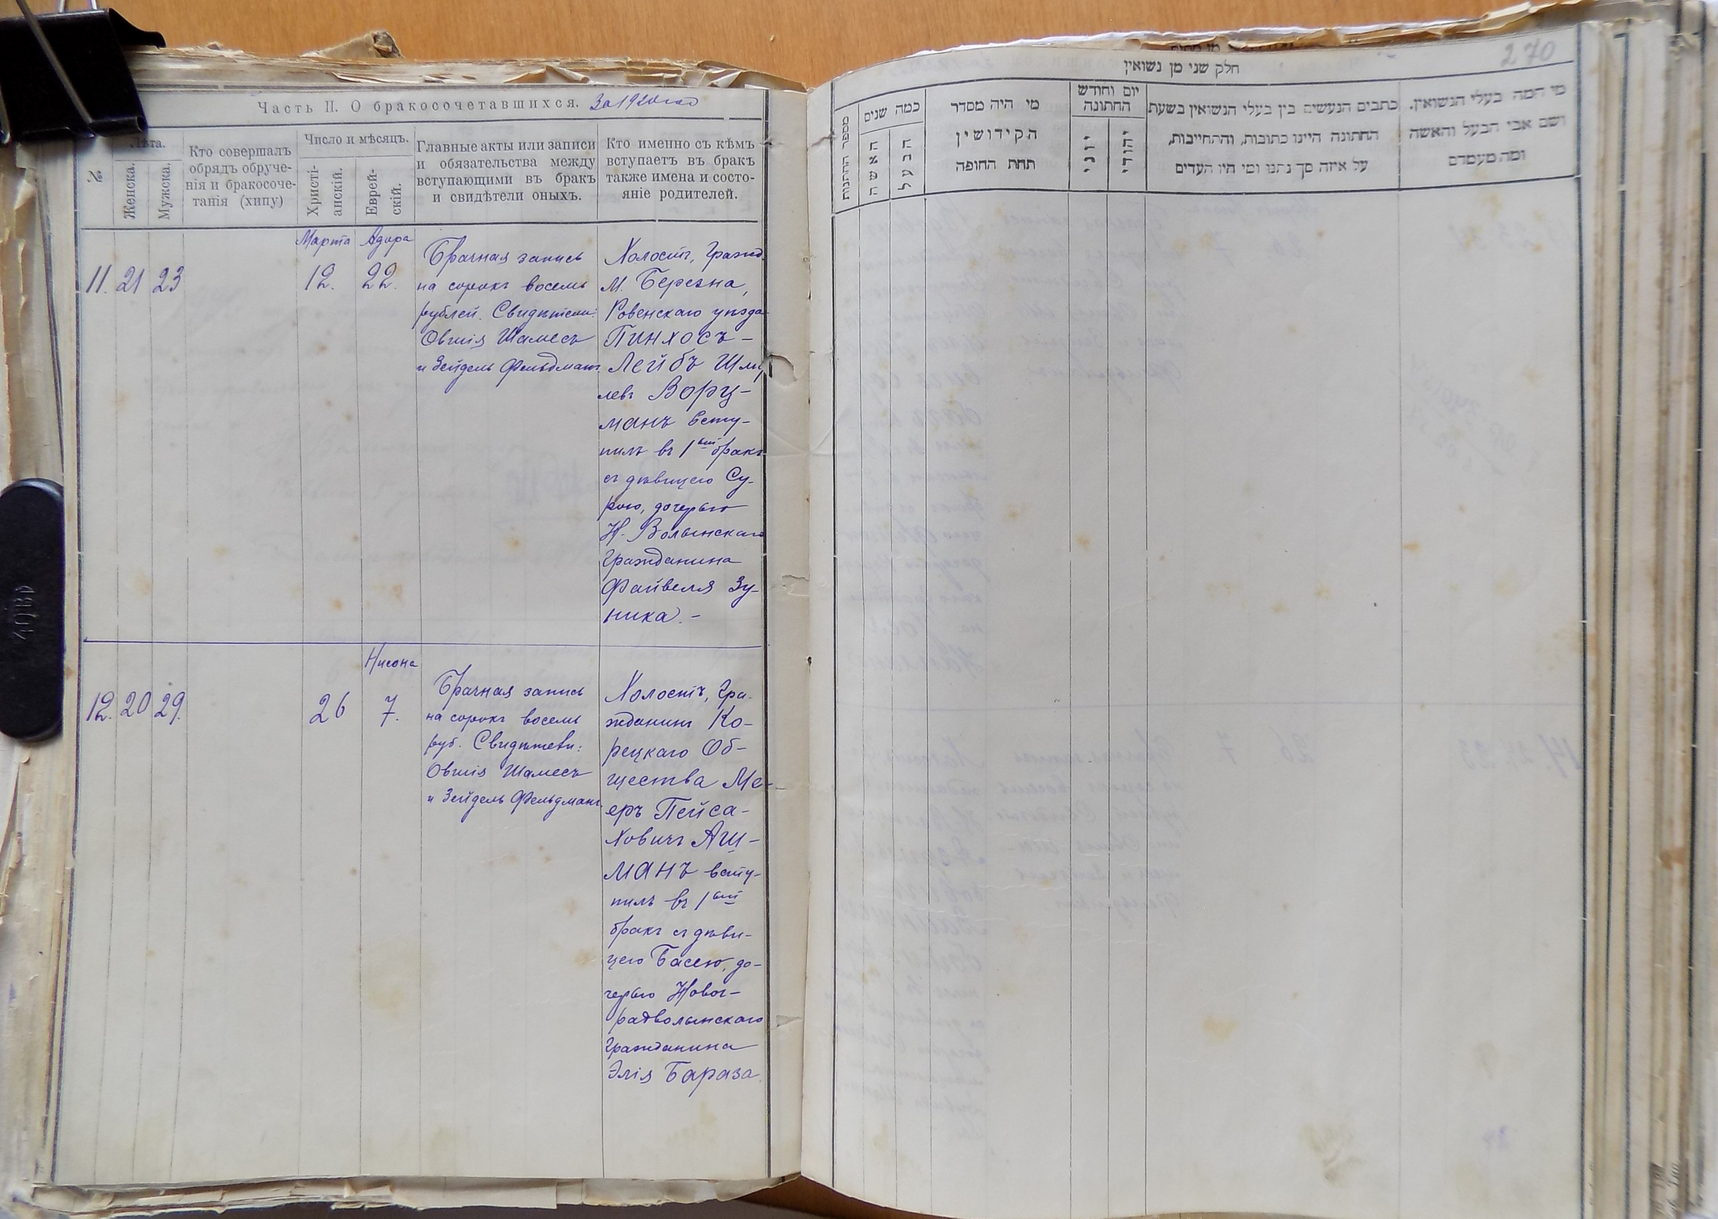 Часть II. О бракосочетавшихся. За 1920 год
№
Лѣта.
Женска.
Мужска.
Кто совершалъ
обрядъ обруче-
нія и бракосоче-
танія (хипу)
Число и мѣсяцъ.
Христі-
анскій.
Еврей-
скій.
Главные акты или записи
и обязательства между
вступающими въ бракъ
и свидѣтели оныхъ.
Кто именно съ кѣмъ
вступаетъ въ бракъ
также имена и состо-
яніе родителей.
Марта Адара
11. 21 23 12. 22.
Брачная запись
на сорокъ восемь
рублей. Свидѣтели:
Овшія Шамесъ
и Зейдель Фельдманъ
Холостъ, Гражд.
м. Березна,
Ровенскаго уѣзда
Пинхосъ-
Лейбъ Шму
левъ Ворц-
манъ всту-
пилъ въ 1ый бракъ
съ дѣвицею Су-
рою, дочерью
Н.-Волынскаго
Гражданина
Файвеля Зу-
ника.-
Нисона
12. 20 29. 26 7.
Брачная запись
на сорокъ восемь
руб. Свидѣтели:
Овшія Шамесъ
и Зейдель Фельдманъ
Холостъ, Гра-
жданинъ Ко-
рецкаго Об-
щества Ме-
еръ Пейса-
ховичъ Аш-
манъ всту-
пилъ въ 1ый
бракъ съ дѣви-
цею Басею, до-
черью Новог-
радволынскаго
Гражданина
Элія Бараза.
270
חלק שני מן נשואין
מספר החתונות
כמה שנים
האשה
הבעל
מי היה מסדר
הקידושין
תחת החופה
יום וחודש
החתונה
יוני
יהודי
כתבים הנעשים בין בעלי הנשואין בשעת
החתונה היינו כתובות, והתחייבות,
על איזה סך נתנו ומי היו העדים
מי המה בעלי הנשואין,
ושם אבי הבעל והאשה
ומה מעמדם